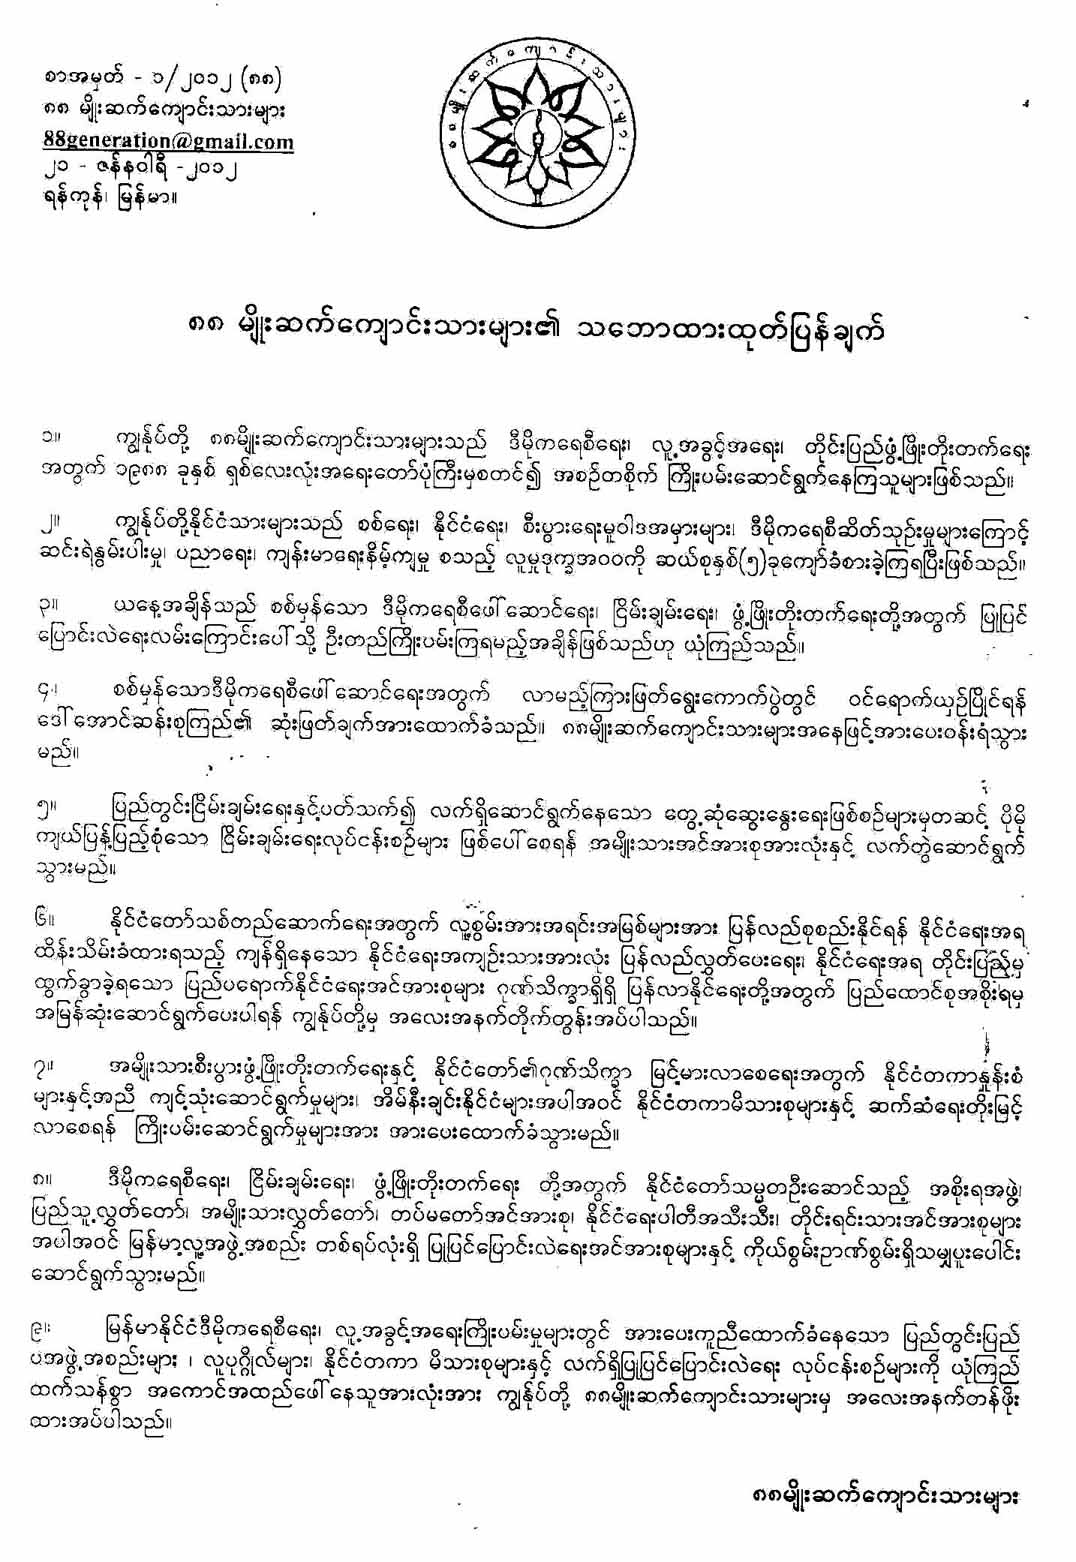 ၈၈မျိုးဆက်ကျောင်းသားများ
စာအမှတ် - ၁/၂၀၁၂ (၈၈)
၈၈ မျိုးဆက်ကျောင်းသားများ
88generation@gmail.com
၂၁ - ဇန်နဝါရီ -၂၀၁၂
ရန်ကုန်၊ မြန်မာ။
၈၈ မျိုးဆက်ကျောင်းသားများ၏ သဘောထားထုတ်ပြန်ချက်
၁။ ကျွန်ုပ်တို့ ၈၈မျိုးဆက်ကျောင်းသားများသည် ဒီမိုကရေစီရေး၊ လူ့အခွင့်အရေး၊ တိုင်းပြည်ဖွံ့ဖြိုးတိုးတက်ရေး
အတွက် ၁၉၈၈ ခုနှစ် ရှစ်လေးလုံးအရေးတော်ပုံကြီးမှစတင်၍ အစဉ်တစိုက် ကြိုးပမ်းဆောင်ရွက်နေကြသူများဖြစ်သည်။
၂။ ကျွန်ုပ်တို့နိုင်ငံသားများသည် စစ်ရေး၊ နိုင်ငံရေး၊ စီးပွားရေးမူဝါဒအမှားများ၊ ဒီမိုကရေစီဆိတ်သုဉ်းမှုများကြောင့်
ဆင်းရဲနွမ်းပါးမှု၊ ပညာရေး၊ ကျန်းမာရေးနိမ့်ကျမှု စသည့် လူမှုဒုက္ခအဝဝကို ဆယ်စုနှစ်(၅)ခုကျော်ခံစားခဲ့ကြရပြီးဖြစ်သည်။
၃။ ယနေ့အချိန်သည် စစ်မှန်သော ဒီမိုကရေစီဖော်ဆောင်ရေး၊ ငြိမ်းချမ်းရေး၊ ဖွံ့ဖြိုးတိုးတက်ရေးတို့အတွက် ပြုပြင်
ပြောင်းလဲရေးလမ်းကြောင်းပေါ်သို့ ဦးတည်ကြိုးပမ်းကြရမည့်အချိန်ဖြစ်သည်ဟု ယုံကြည်သည်။
၄။ စစ်မှန်သောဒီမိုကရေစီဖော်ဆောင်ရေးအတွက် လာမည့်ကြားဖြတ်ရွေးကောက်ပွဲတွင် ဝင်ရောက်ယှဉ်ပြိုင်ရန်
ဒေါ်အောင်ဆန်းစုကြည်၏ ဆုံးဖြတ်ချက်အားထောက်ခံသည်။ ၈၈မျိုးဆက်ကျောင်းသားများအနေဖြင့်အားပေးဝန်းရံသွား
မည်။
၅။ ပြည်တွင်းငြိမ်းချမ်းရေးနှင့်ပတ်သက်၍ လက်ရှိဆောင်ရွက်နေသော တွေ့ဆုံဆွေးနွေးရေးဖြစ်စဉ်များမှတဆင့် ပိုမို
ကျယ်ပြန့်ပြည့်စုံသော ငြိမ်းချမ်းရေးလုပ်ငန်းစဉ်များ ဖြစ်ပေါ်စေရန် အမျိုးသားအင်အားစုအားလုံးနှင့် လက်တွဲဆောင်ရွက်
သွားမည်။
၆။ နိုင်ငံတော်သစ်တည်ဆောက်ရေးအတွက် လူ့စွမ်းအားအရင်းအမြစ်များအား ပြန်လည်စုစည်းနိုင်ရန် နိုင်ငံရေးအရ
ထိန်းသိမ်းခံထားရသည့် ကျန်ရှိနေသော နိုင်ငံရေးအကျဉ်းသားအားလုံး ပြန်လည်လွှတ်ပေးရေး၊ နိုင်ငံရေးအရ တိုင်းပြည်မှ
ထွက်ခွာခဲ့ရသော ပြည်ပရောက်နိုင်ငံရေးအင်အားစုများ ဂုဏ်သိက္ခာရှိရှိ ပြန်လာနိုင်ရေးတို့အတွက် ပြည်ထောင်စုအစိုးရမှ
အမြန်ဆုံးဆောင်ရွက်ပေးပါရန် ကျွန်ုပ်တို့မှ အလေးအနက်တိုက်တွန်းအပ်ပါသည်။
၇။ အမျိုးသားစီးပွားဖွံ့ဖြိုးတိုးတက်ရေးနှင့် နိုင်ငံတော်၏ဂုဏ်သိက္ခာ မြင့်မားလာစေရေးအတွက် နိုင်ငံတကာနှုန်းစံ
များနှင့်အညီ ကျင့်သုံးဆောင်ရွက်မှုများ၊ အိမ်နီးချင်းနိုင်ငံများအပါအဝင် နိုင်ငံတကာမိသားစုများနှင့် ဆက်ဆံရေးတိုးမြင့်
လာစေရန် ကြိုးပမ်းဆောင်ရွက်မှုများအား အားပေးထောက်ခံသွားမည်။
၈။ ဒီမိုကရေစီရေး၊ ငြိမ်းချမ်းရေး၊ ဖွံ့ဖြိုးတိုးတက်ရေး တို့အတွက် နိုင်ငံတော်သမ္မတဦးဆောင်သည့် အစိုးရအဖွဲ့၊
ပြည်သူ့လွှတ်တော်၊ အမျိုးသားလွှတ်တော်၊ တပ်မတော်အင်အားစု၊ နိုင်ငံရေးပါတီအသီးသီး၊ တိုင်းရင်းသားအင်အားစုများ
အပါအဝင် မြန်မာ့လူ့အဖွဲ့အစည်း တစ်ရပ်လုံးရှိ ပြုပြင်ပြောင်းလဲရေးအင်အားစုများနှင့် ကိုယ်စွမ်းဉာဏ်စွမ်းရှိသမျှပူးပေါင်း
ဆောင်ရွက်သွားမည်။
၉။ မြန်မာနိုင်ငံဒီမိုကရေစီရေး၊ လူ့အခွင့်အရေးကြိုးပမ်းမှုများတွင် အားပေးကူညီထောက်ခံနေသော ပြည်တွင်းပြည်
ပအဖွဲ့အစည်းများ ၊ လူပုဂ္ဂိုလ်များ၊ နိုင်ငံတကာ မိသားစုများနှင့် လက်ရှိပြုပြင်ပြောင်းလဲရေး လုပ်ငန်းစဉ်များကို ယုံကြည်
ထက်သန်စွာ အကောင်အထည်ဖော်နေသူအားလုံးအား ကျွန်ုပ်တို့ ၈၈မျိုးဆက်ကျောင်းသားများမှ အလေးအနက်တန်ဖိုး
ထားအပ်ပါသည်။
၈၈မျိုးဆက်ကျောင်းသားများ